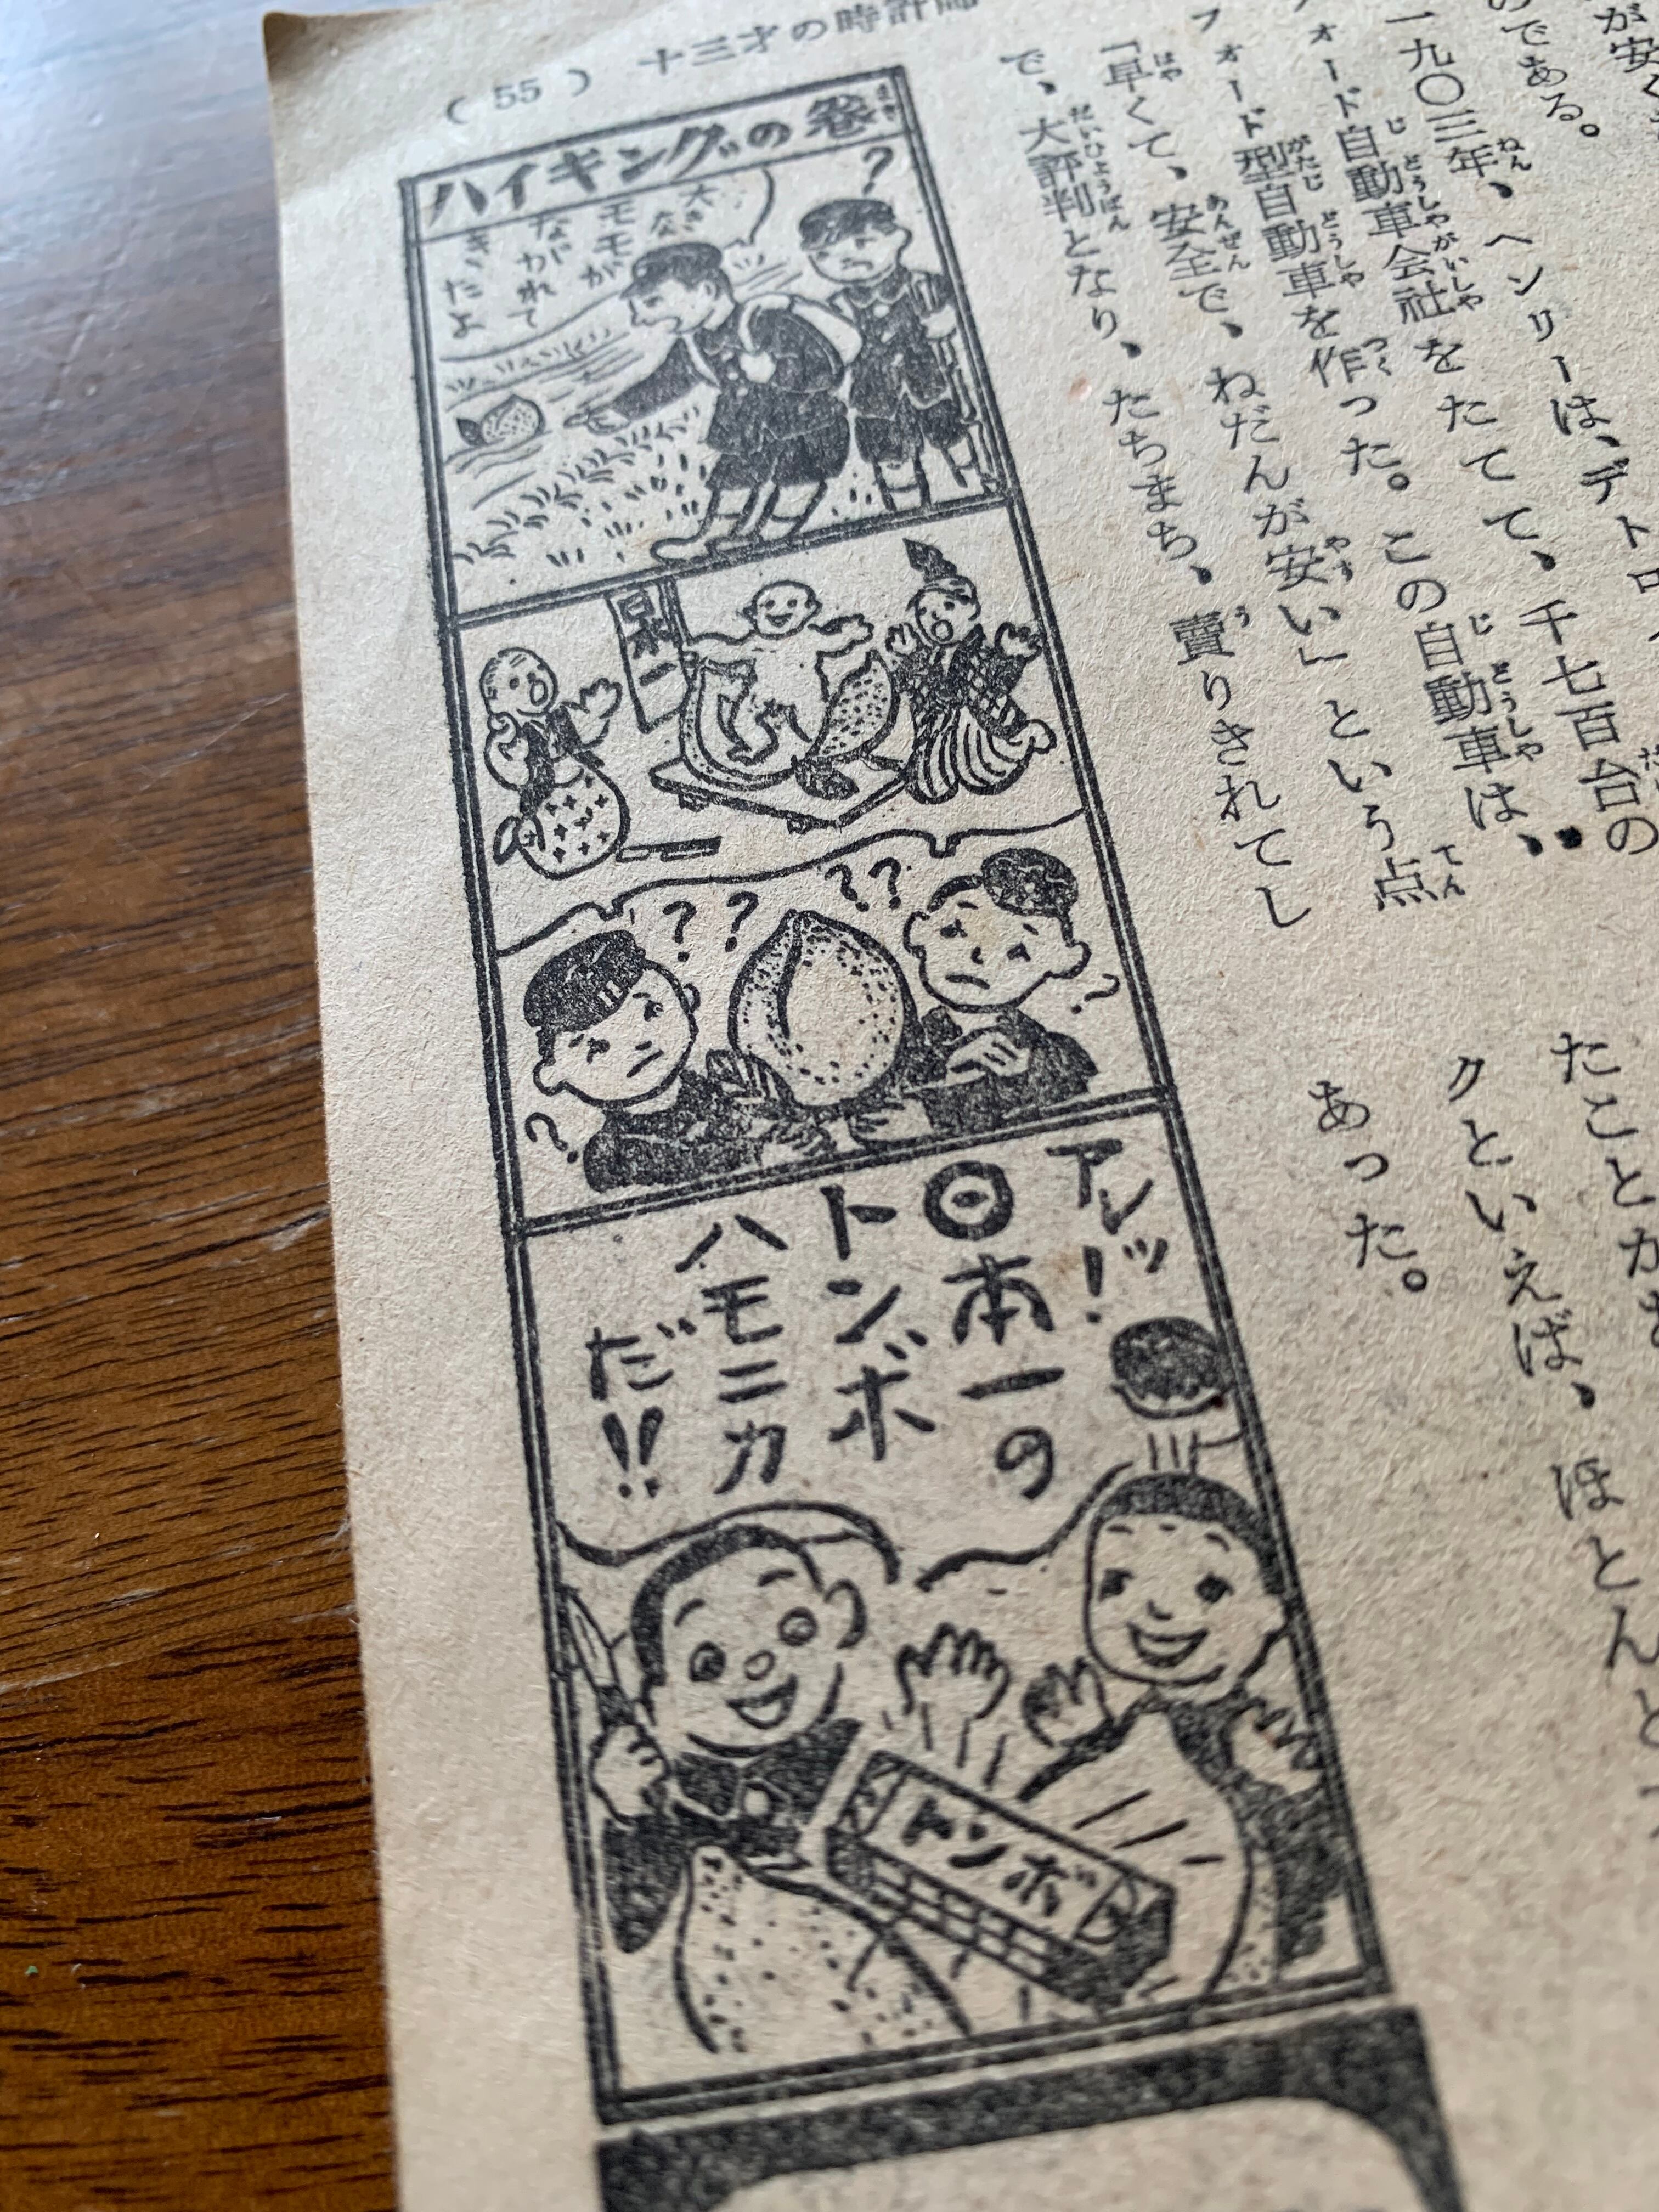 (55) 十三才の時計師
のである。
一九〇三年、ヘンリーは、デトロ
フォード自動車会社をたてて、千七百台の
フォード型自動車を作った。この自動車は、
「早くて、安全で、ねだんが安い」という点
で、大評判となり、たちまち、賣りきれてし
クといえば、ほとんど
あった。
ハイキングの巻
?
大きな
モモが
ながれて
きたよ
日本一
? ? ? ?
?
?
アレッ!
日本一の
トンボ
ハモニカ
だ!!
トンボ